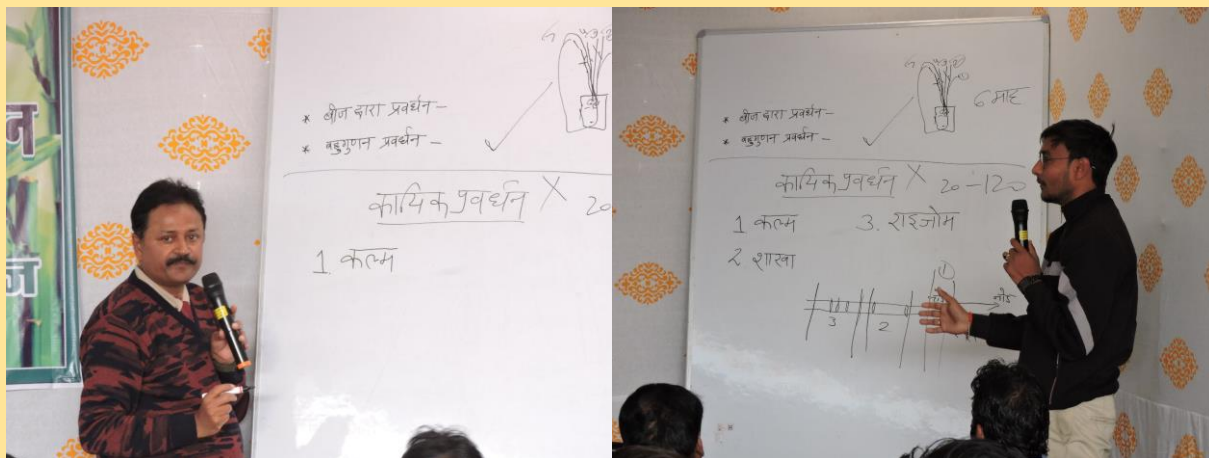 * बीज द्वारा प्रवर्धन –
* बहुगुणन प्रवर्धन –
कायिक प्रवर्धन X 20
1. कलम
6 माह
* बीज द्वारा प्रवर्धन –
* बहुगुणन प्रवर्धन –
कायिक प्रवर्धन X 20–120
1 कलम 3. राइजोम
2 शाखा
1
नोड
3 2